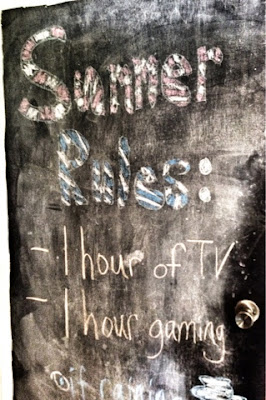 Summer
Rules:
- 1 hour of TV
- 1 hour gaming
if